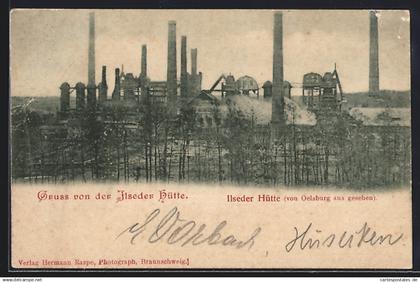 Gruss von der Ilseder Hütte.
Ilseder Hütte (von Oelsburg aus gesehen).
Verlag Hermann Raspe, Photograph, Braunschweig.